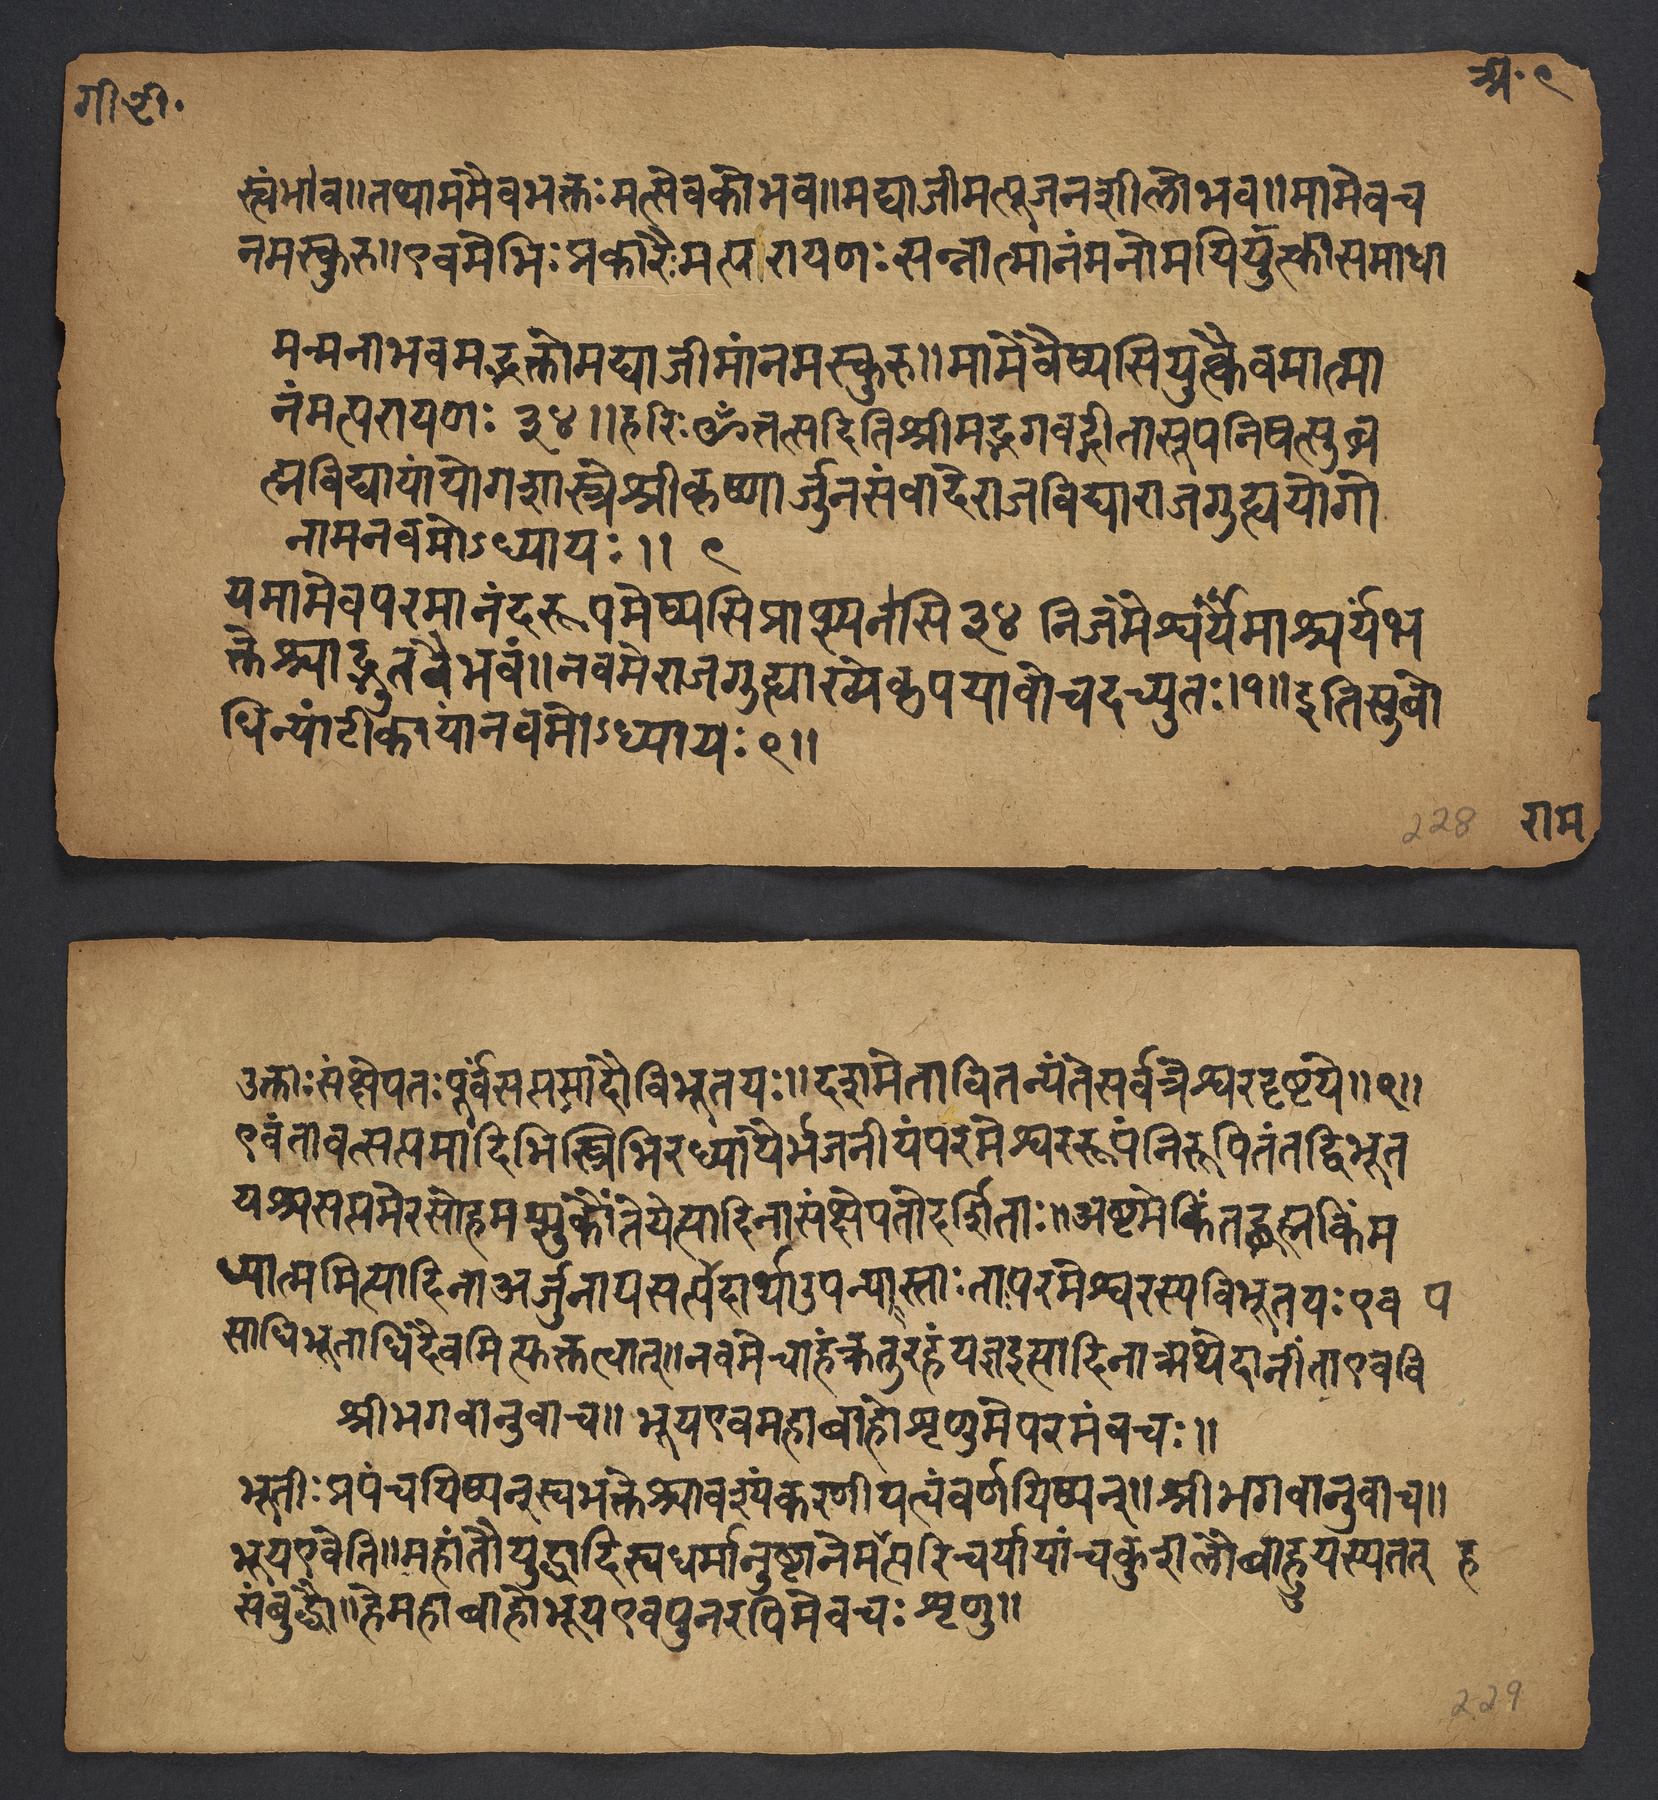 गी टी॰
अ॰ ९
स्त्वंभव॥तथाममैवभक्तःमत्सेवकोभव॥मद्याजीमत्पूजनशीलोभव॥मामेवच
नमस्कुरु॥एवमेभिःप्रकारैःमत्परायणःसन्नात्मानंमनोमयियुत्क्तासमाधा
मन्मनाभवमद्भक्तोमद्याजीमांनमस्कुरु॥मामेवैष्यसियुत्क्तैवमात्मा
नंमत्परायणः ३४॥हरिःॐतत्सदितिश्रीमद्भगवद्गीतासूपनिषत्सुब्र
ह्मविद्यायांयोगशास्त्रेश्रीकृष्णार्जुनसंवादेराजविद्याराजगुह्ययोगो
नामनवमोऽध्यायः॥ ९
यमामेवपरमानंदरूपमेष्यसिप्राप्स्यसि ३४ निजमैश्वर्यमाश्चर्यंभ
क्तेश्चाद्भुतवैभवं॥नवमेराजगुह्याख्येकृपयावोचदच्युतः।१॥इतिसुबो
धिन्यांटीकायांनवमोऽध्यायः ९॥
228
राम
उक्ताःसंक्षेपतःपूर्वंसप्तमादौविभूतयः॥दशमेतावितन्यंतेसर्वत्रैश्वरदृष्टये॥१॥
एवंतावत्सप्तमादिभिस्त्रिभिरध्यायैर्भजनीयंपरमेश्वररूपंनिरूपितंतद्विभूत
यश्चसप्तमेरसोहमप्सुकौंतेयेत्यादिनासंक्षेपतोदर्शिताः॥अष्टमेकिंतद्ब्रह्मकिंम
ध्यात्ममित्यादिनाअर्जुनायसप्तपदार्थाउपन्यास्ताःतापरमेश्वरस्यविभूतयःएव प
साधिभूताधिदैवमित्युक्तत्वात्॥नवमेचाहंक्रतुरहंयज्ञइत्यादिनाअथेदानींताएववि
श्रीभगवानुवाच॥ भूयएवमहाबाहोशृणुमेपरमंवचः॥
भूतीःप्रपंचयिष्यन्स्वभक्तेश्चावश्यंकरणीयत्वंवर्णयिष्यन्॥श्रीभगवानुवाच॥
भूयएवेति॥महांतौयुद्धादिस्वधर्मानुष्ठानेमत्परिचर्यायांचकुशलौबाहुयस्यतत् ह
संबुद्धौ॥हेमहाबाहोभूयएवपुनरपिमेवचः शृणु॥
229